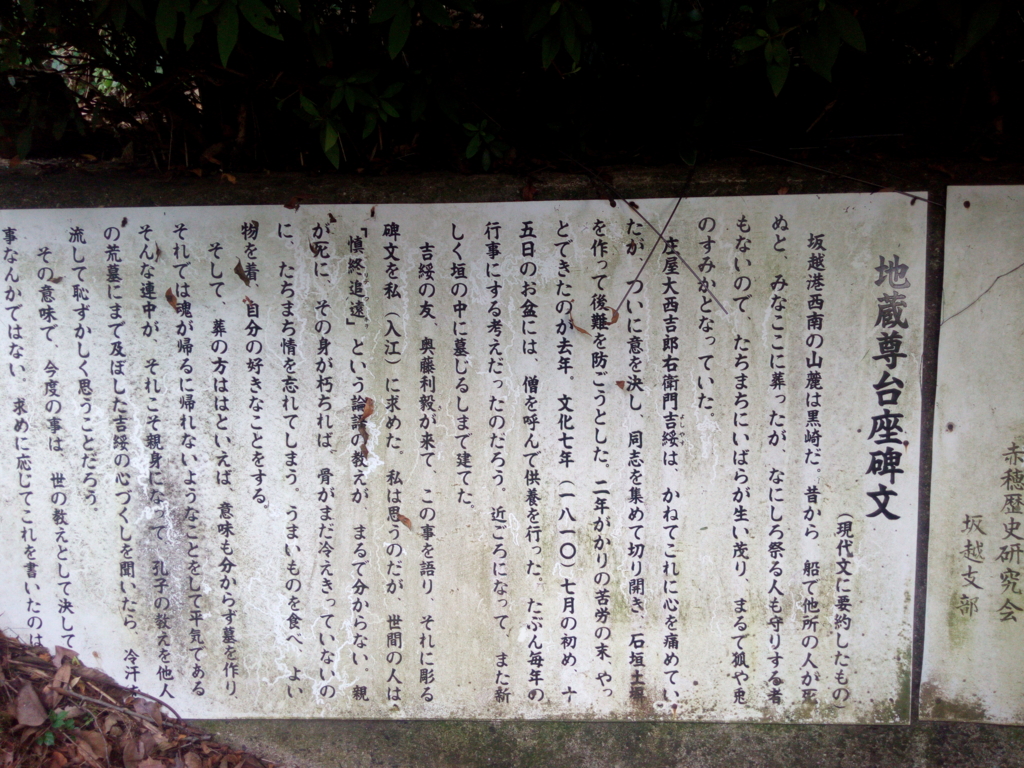 赤穂歴史研究会
坂越支部
地蔵尊台座碑文
(現代文に要約したもの)
坂越港西南の山麓は黒崎だ。昔から 船で他所の人が死
ぬと、みなここに葬ったが、なにしろ祭る人も守りする者
もないので、たちまちにいばらが生い茂り、まるで狐や兎
のすみかとなっていた。
庄屋大西吉郎右衛門吉綏は、かねてこれに心を痛めてい
たが、ついに意を決し、同志を集めて切り開き、石垣土塀
を作って後難を防ごうとした。二年がかりの苦労の末、やっ
とできたのが去年。文化七年(一八一〇)七月の初め、十
五日のお盆には、僧を呼んで供養を行った。たぶん毎年の
行事にする考えだったのだろう。近ごろになって、また新
しく垣の中に墓じるしまで建てた。
吉綏の友、奥藤利毅が来て、この事を語り、それに彫る
碑文を私(入江)に求めた。私は思うのだが、世間の人は。
「慎終追遠」という論語の教えが まるで分からない。親
が死に、その身が朽ちれば。骨がまだ冷えきっていないの
に、たちまち情を忘れてしまう。うまいものを食べ、よい
物を着、自分の好きなことをする。
そして、葬の方ははといえば、意味も分からず墓を作り
それでは魂が帰るに帰れないようなことをして平気である
そんな連中が、それこそ親身になって、孔子の教えを他人
の荒墓にまで及ぼした吉綏の心づくしを聞いたら、冷汗を
流して恥ずかしく思うことだろう。
その意味で、今度の事は、世の教えとして決して
事なんかではない。求めに応じてこれを書いたのは